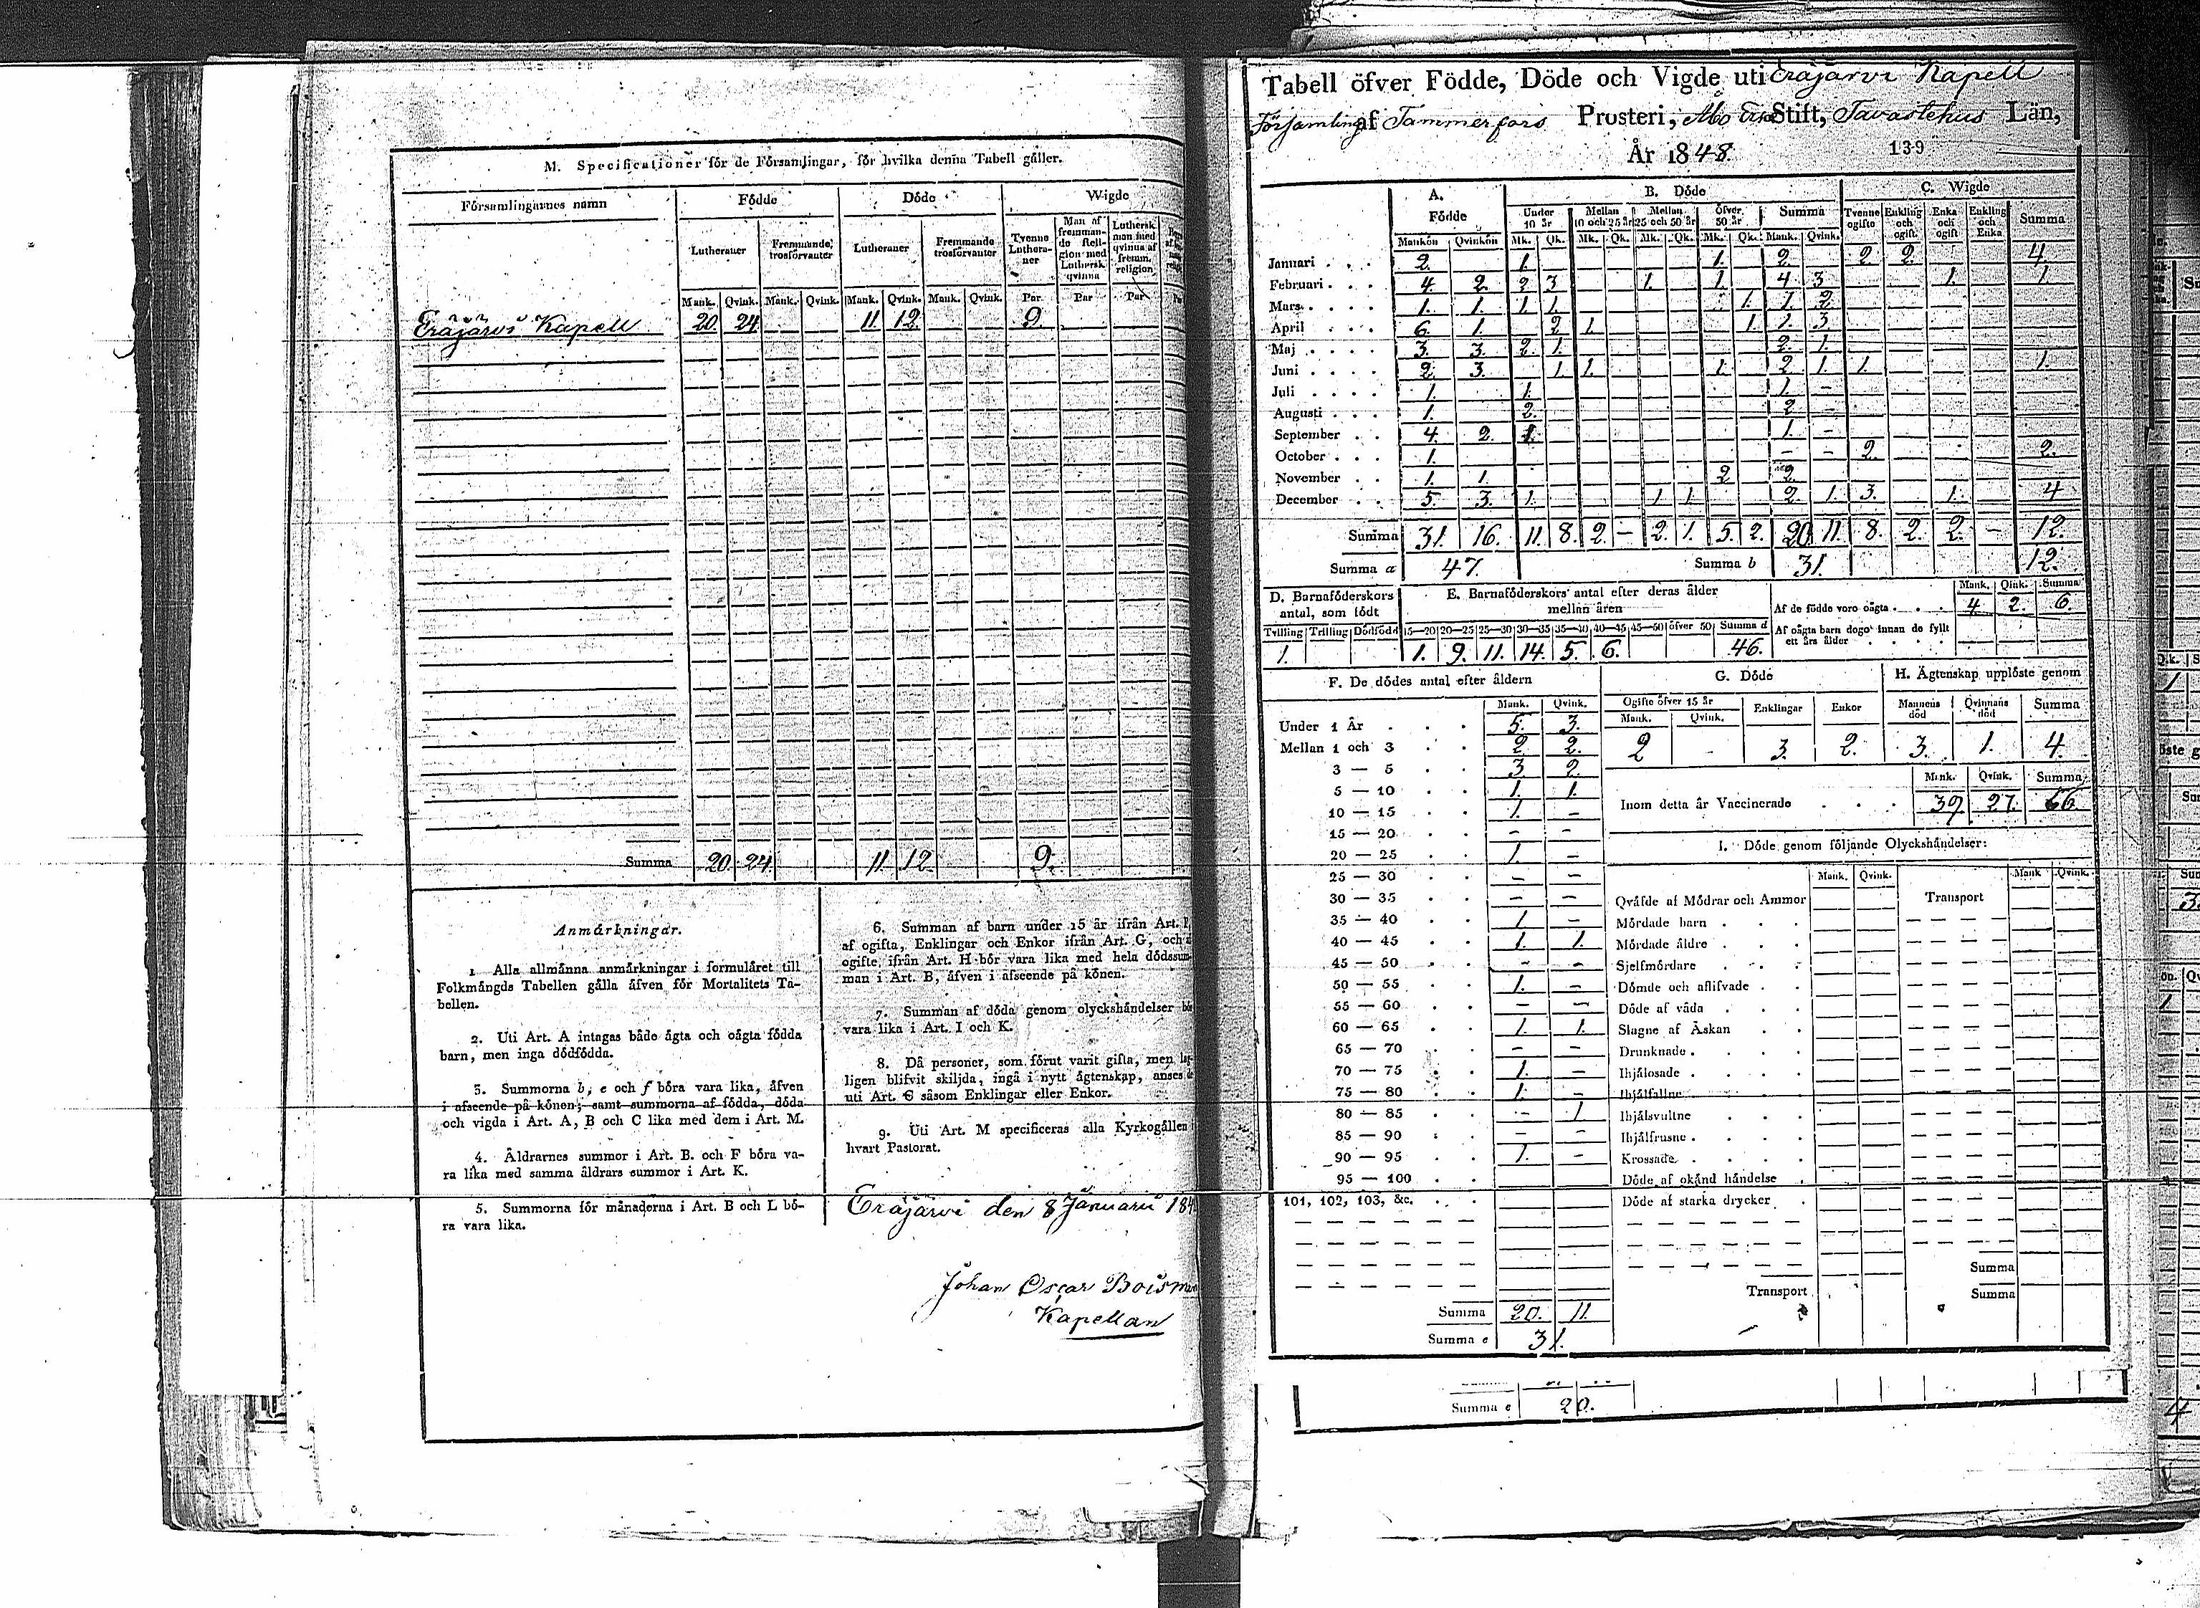 M. Specificationer för de Församlingar, för hvilka denna Tabell gäller.
Församlingarnes namn
Födde
Döde
Wigde
Lutheraner
Fremmande trosförvanter
Lutheraner
Fremmande trosförvanter
Tvenne Lutheraner
Man af fremmande Religion med Luthersk qvinna
Luthersk man med qvinna af fremm. religion
Mank. Qvink. Mank. Qvink. Mank. Qvink. Mank. Qvink. Par Par Par
Eräjärvi Kapell 20. 24. 11. 12. 9.
Summa 20. 24. 11. 12. 9.
Anmärkningar.
1 Alla allmänna anmärkningar i formuläret till
Folkmängds Tabellen gälla äfven för Mortalitets Ta-
bellen.
2. Uti Art. A intagas både ägta och oägta födda
barn, men inga dödfödda.
3. Summorna b, e och f böra vara lika, äfven
i afseende på könen; samt summorna af födda, döda
och vigda i Art. A, B och C lika med dem i Art. M.
4. Åldrarnes summor i Art. B. och F böra va-
ra lika med samma åldrars summor i Art. K.
5. Summorna för månaderna i Art. B och L bö-
ra vara lika.
6. Summan af barn under 15 år ifrån Art. F,
af ogifta, Enklingar och Enkor ifrån Art. G, och
ogifte ifrån Art. H bör vara lika med hela dödssum-
man i Art. B, äfven i afseende på könen.
7. Summan af döda genom olyckshändelser bör
vara lika i Art. I och K.
8. Då personer, som förut varit gifta, men lag-
ligen blifvit skiljda, ingå i nytt ägtenskap, anses de
uti Art. C såsom Enklingar eller Enkor.
9. Uti Art. M specificeras alla Kyrkogällen i
hvart Pastorat.
Eräjärvi den 8 Januarii 184
Johan Oscar Boisman
Kapellan
Tabell öfver Födde, Döde och Vigde uti Eräjärvi Kapell
Församling af Tammerfors Prosteri, Åbo Erke Stift, Tavastehus Län,
År 1848. 139
A. Födde
B. Döde
C. Wigde
Under 10 år
Mellan 10 och 25 år
Mellan 25 och 50 år
Öfver 50 år
Summa
Tvenne ogifte
Enkling och ogift
Enka och ogift
Enkling och Enka
Summa
Mankön Qvinkön Mk. Qk. Mk. Qk. Mk. Qk. Mk. Qk. Mank. Qvink.
Januari 2. 1. 1. 2. 2. 2. 4.
Februari 4. 2. 2 3 1. 1. 4 3 1. 1.
Mars 1. 1. 1. 1. 1. 1. 2
April 6. 1. 2 1. 1. 1. 3.
Maj 3. 3. 2 1. 2. 1.
Juni 2. 3. 1. 1. 1. 2 1. 1. 1.
Juli 1. 1. 1. -
Augusti 1. 2. 2 -
September 4. 2. 1. 1. -
October 1. - - 2. 2.
November 1. 1. 2 2.
December 5. 3. 1. 1. 1. 2 1. 3. 1. 4
Summa 31. 16. 11. 8. 2. - 2. 1. 5. 2. 20 11. 8. 2. 2. - 12.
Summa a 47. Summa b 31. 12.
D. Barnaföderskors antal, som födt
Tvilling Trilling Dödfödd
1.
E. Barnaföderskors antal efter deras ålder
mellan åren
15—20 20—25 25—30 30—35 35—40 40—45 45—50 öfver 50 Summa d
1. 9. 11. 14. 5. 6. 46.
Mank. Qink. Summa
Af de födde voro oägta 4 2. 6.
Af oägta barn dogo innan de fyllt
ett års ålder
F. De dödes antal efter åldern
Mank. Qvink.
Under 1 År 5. 3.
Mellan 1 och 3 2 2.
3 — 5 3 2.
5 — 10 1. 1.
10 — 15 1. -
15 — 20 - -
20 — 25 1. -
25 — 30 - -
30 — 35 - -
35 — 40 1 -
40 — 45 1. 1.
45 — 50 - -
50 — 55 1. -
55 — 60 - -
60 — 65 1. 1.
65 — 70 - -
70 — 75 1. -
75 — 80 1. -
80 — 85 - 1
85 — 90 - -
90 — 95 1. -
95 — 100
101, 102, 103, &c.
Summa 20. 11.
Summa e 31.
G. Döde
Ogifte öfver 15 år Enklingar Enkor
Mank. Qvink.
2 - 3. 2.
H. Ägtenskap upplöste genom
Mannens död Qvinnans död Summa
3. 1. 4.
Mank. Qvink. Summa
Inom detta år Vaccinerade 39. 27. 66.
I. Döde genom följande Olyckshändelser:
Mank. Qvink. Mank Qvink.
Qväfde af Mödrar och Ammor
Transport
Mördade barn
Mördade äldre
Sjelfmördare
Dömde och aflifvade
Döde af våda
Slagne af Åskan
Drunknade
Ihjälosade
Ihjälfallne
Ihjälsvultne
Ihjälfrusne
Krossade
Döde af okänd händelse
Döde af starka drycker
Summa
Transport Summa
Summa e 20.